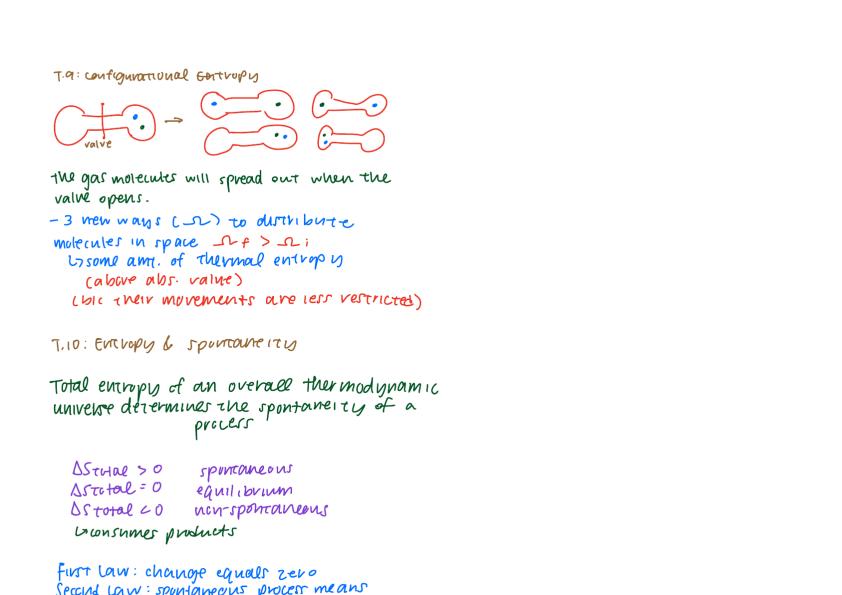 T.9: configurational Entropy
valve
the gas molecules will spread out when the
valve opens.
- 3 new ways (Ω) to distribute
molecules in space Ωf > Ωi
↳ some amt. of thermal entropy
(above abs. value)
(b/c their movements are less restricted)
T.10: Entropy & spontaneity
Total entropy of an overall thermodynamic
universe determines the spontaneity of a
process
ΔStotal > 0 spontaneous
ΔStotal = 0 equilibrium
ΔStotal < 0 non-spontaneous
↳ consumes products
First Law: change equals zero
Second Law: spontaneous process means